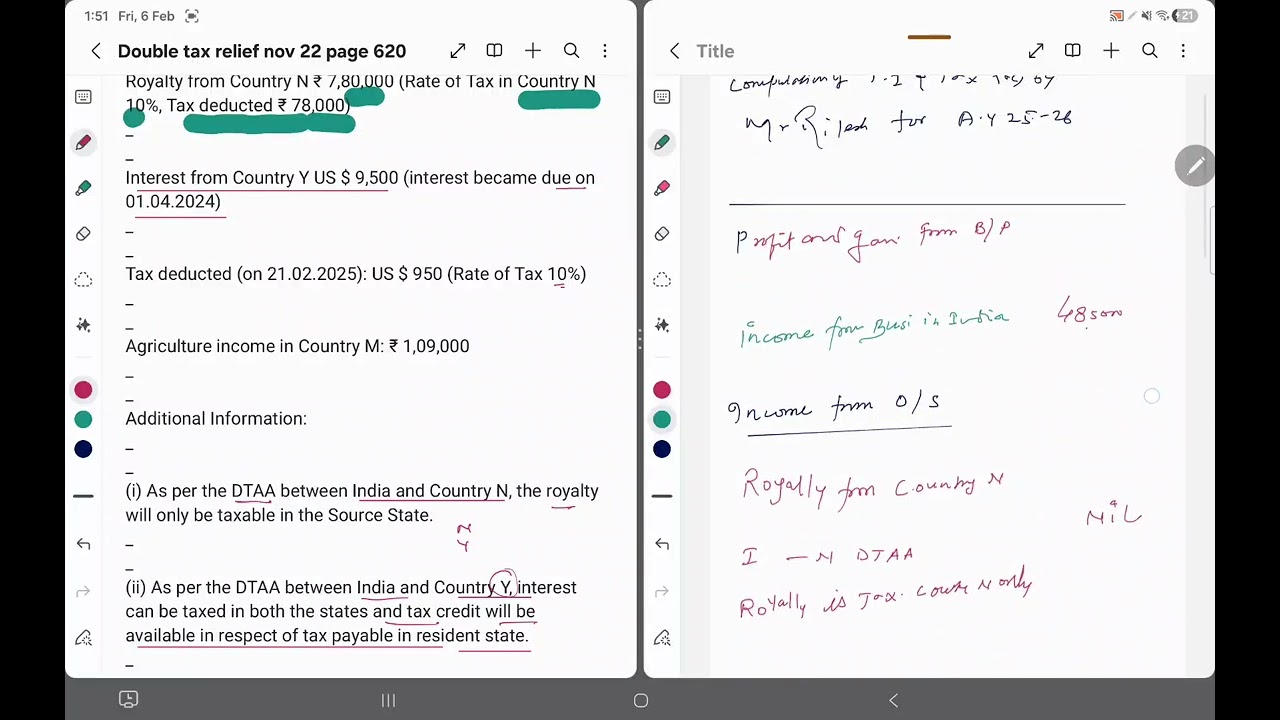 1:51 Fri, 6 Feb
21
Double tax relief nov 22 page 620
Royalty from Country N ₹ 7,80,000 (Rate of Tax in Country N
10%, Tax deducted ₹ 78,000)
–
–
Interest from Country Y US $ 9,500 (interest became due on
01.04.2024)
–
–
Tax deducted (on 21.02.2025): US $ 950 (Rate of Tax 10%)
–
–
Agriculture income in Country M: ₹ 1,09,000
–
–
Additional Information:
–
–
(i) As per the DTAA between India and Country N, the royalty
will only be taxable in the Source State.
N
Y
–
–
(ii) As per the DTAA between India and Country Y, interest
can be taxed in both the states and tax credit will be
available in respect of tax payable in resident state.
–
Title
T.I & Tax by
Mr for A.Y 25-26
Profit and gain from B/P
Income from Busi in India
Income from O/S
Royally from Country N
NiL
I — N DTAA
Royally is Tax. N only